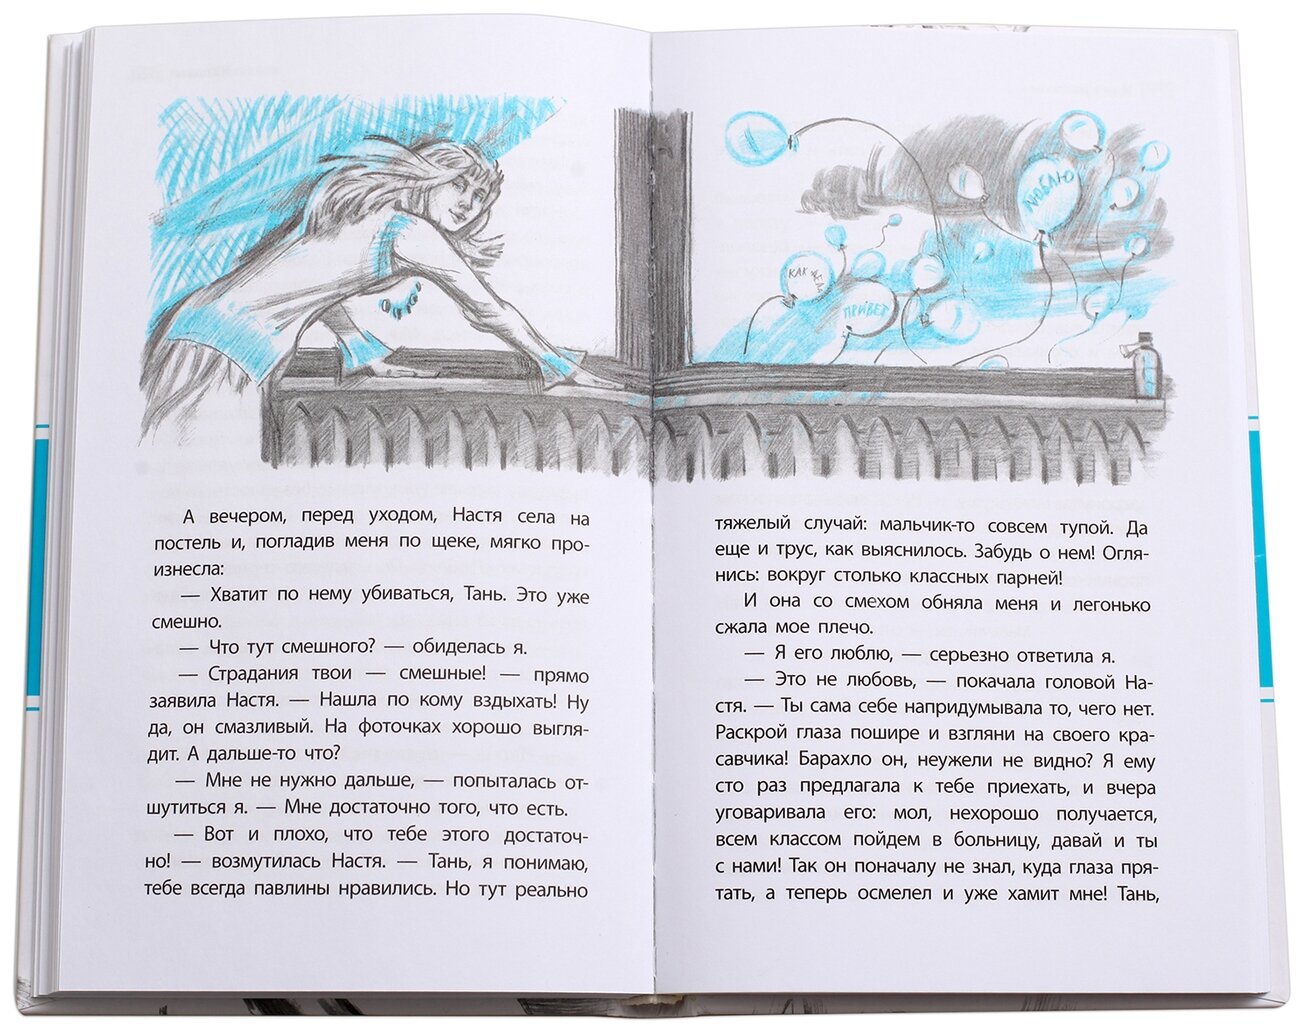 ЛЮБЛЮ
КАК ДЕЛА
ПРИВЕТ
А вечером, перед уходом, Настя села на
постель и, погладив меня по щеке, мягко про-
изнесла:
— Хватит по нему убиваться, Тань. Это уже
смешно.
— Что тут смешного? — обиделась я.
— Страдания твои — смешные! — прямо
заявила Настя. — Нашла по кому вздыхать! Ну
да, он смазливый. На фоточках хорошо выгля-
дит. А дальше-то что?
— Мне не нужно дальше, — попыталась от-
шутиться я. — Мне достаточно того, что есть.
— Вот и плохо, что тебе этого достаточ-
но! — возмутилась Настя. — Тань, я понимаю,
тебе всегда павлины нравились. Но тут реально
тяжелый случай: мальчик-то совсем тупой. Да
еще и трус, как выяснилось. Забудь о нем! Огля-
нись: вокруг столько классных парней!
И она со смехом обняла меня и легонько
сжала мое плечо.
— Я его люблю, — серьезно ответила я.
— Это не любовь, — покачала головой На-
стя. — Ты сама себе напридумывала то, чего нет.
Раскрой глаза пошире и взгляни на своего кра-
савчика! Барахло он, неужели не видно? Я ему
сто раз предлагала к тебе приехать, и вчера
уговаривала его: мол, нехорошо получается,
всем классом пойдем в больницу, давай и ты
с нами! Так он поначалу не знал, куда глаза пря-
тать, а теперь осмелел и уже хамит мне! Тань,